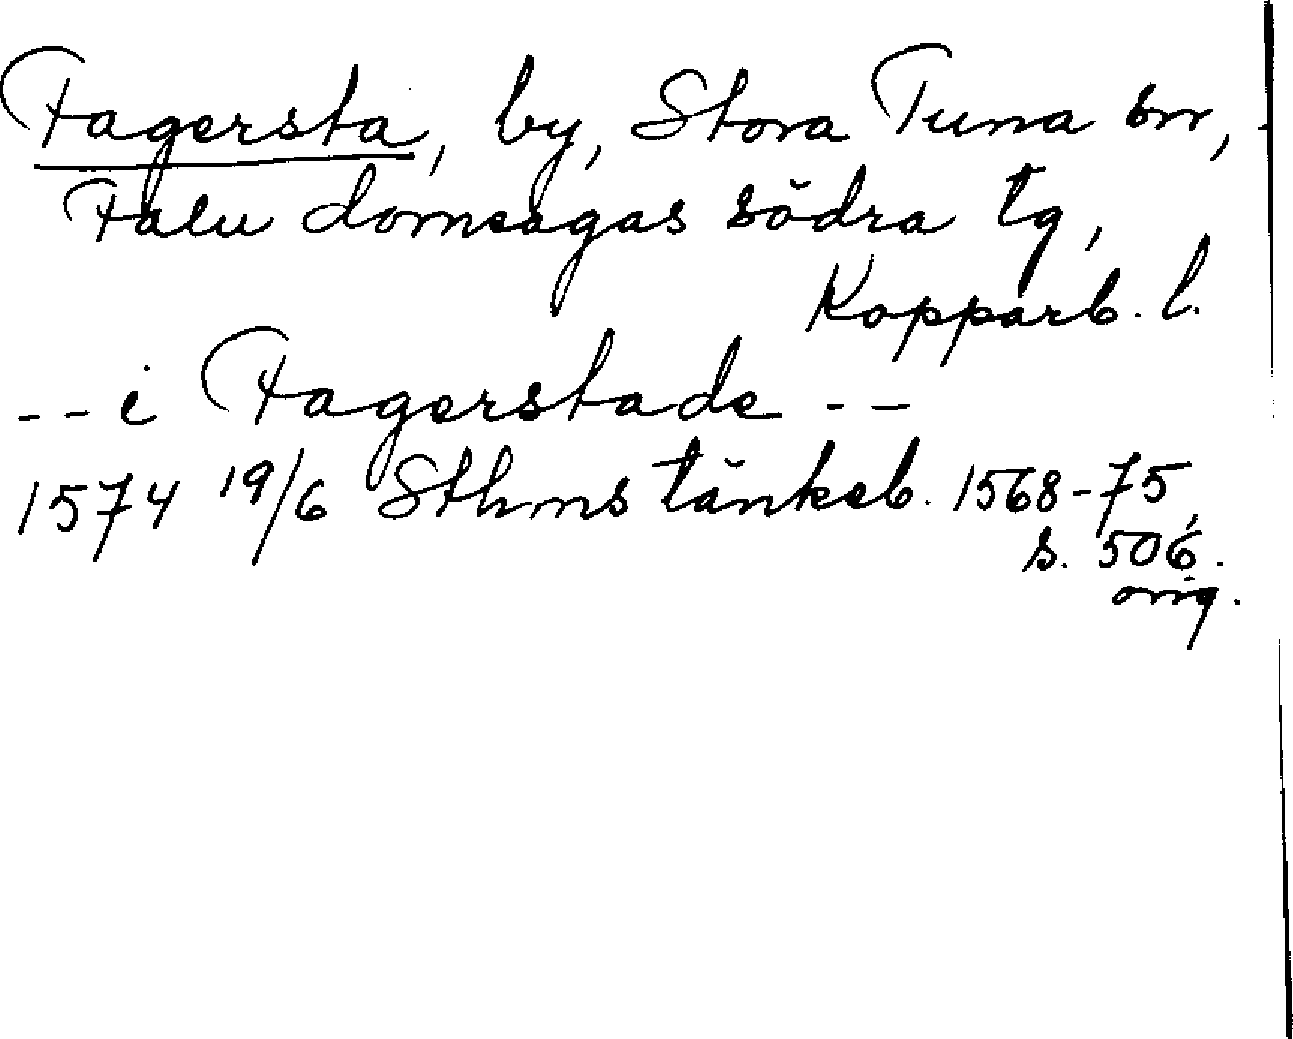 Fagersta, by, Stora Tuna sn,
Falu domsagas södra tg,
Kopparb. l.
-- i Fagerstade --
1574 19/6 Sthms tänkeb. 1568-75,
s. 506.
orig.